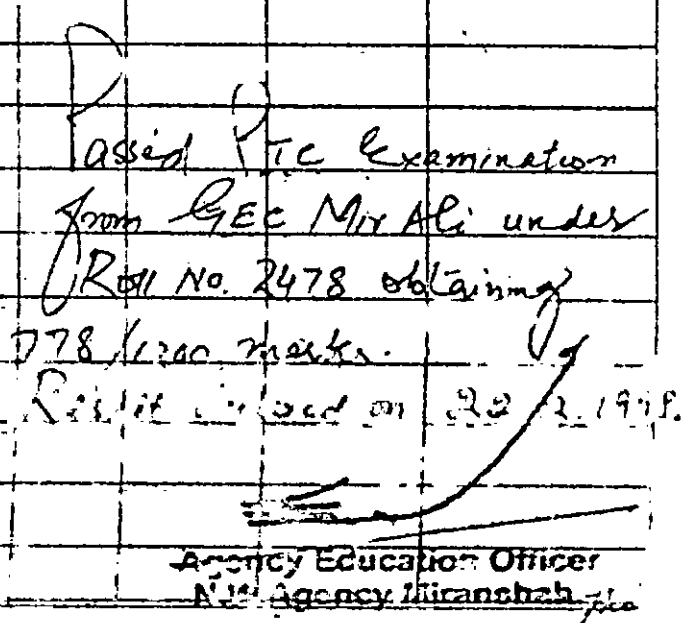 Passed PTC Examination
from GEC Mir Ali under
Roll No. 2478 obtaining
778/1200 marks.
on 1998.
Agency Education Officer
N.W Agency Miranshah